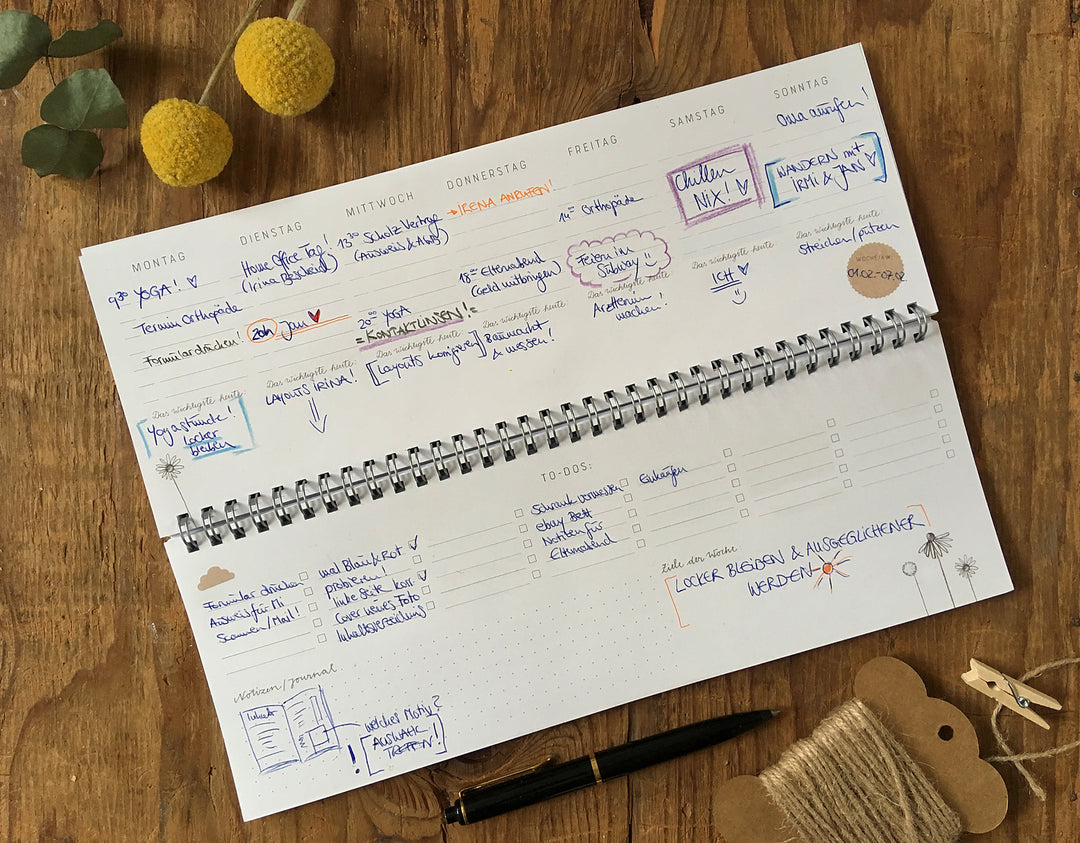 MONTAG
9³⁰ YOGA! ♡
Termin Orthopäde
Formular drucken!
Das Wichtigste heute:
Yogastunde!
Locker
bleiben
DIENSTAG
Home Office Tag!
(Irina Bescheid)
20h Jan
Das Wichtigste heute:
LAYOUTS IRINA!
MITTWOCH
13³⁰ Scholz Vertrag
(Ausweis &
20⁰⁰ YOGA
=KONTAKTLINSEN!=
Das Wichtigste heute:
[Layouts korrigieren]
DONNERSTAG
→IRENA ANRUFEN!
18⁰⁰ Elternabend
(Geld mitbringen)
Das Wichtigste heute:
& messen!
FREITAG
14⁰⁰ Orthopäde
Feiern im
Subway!!
Das Wichtigste heute:
Arzttermin
machen!
SAMSTAG
Chillen
NIX! ♡
Das Wichtigste heute:
ICH ♡
SONNTAG
Oma anrufen!
WANDERN mit
IRMI & JAN ♡
Das Wichtigste heute:
Streichen/putzen
WOCHE/KW:
01.02.-07.02
TO-DOS:
Formular drucken
Ausweis für Mi
Scannen/Mail!
mal Blau & Rot
probieren!
linke Seite korr.
Cover neues Foto
Inhaltsverzeichnis
Schrank vermessen
ebay Bett
Notizen für
Elternabend
Einkaufen
Ziele der Woche
LOCKER BLEIBEN & AUSGEGLICHENER
WERDEN
Notizen/Journal
Inhalt
welches Motiv?
AUSWAHL
TREFFEN!